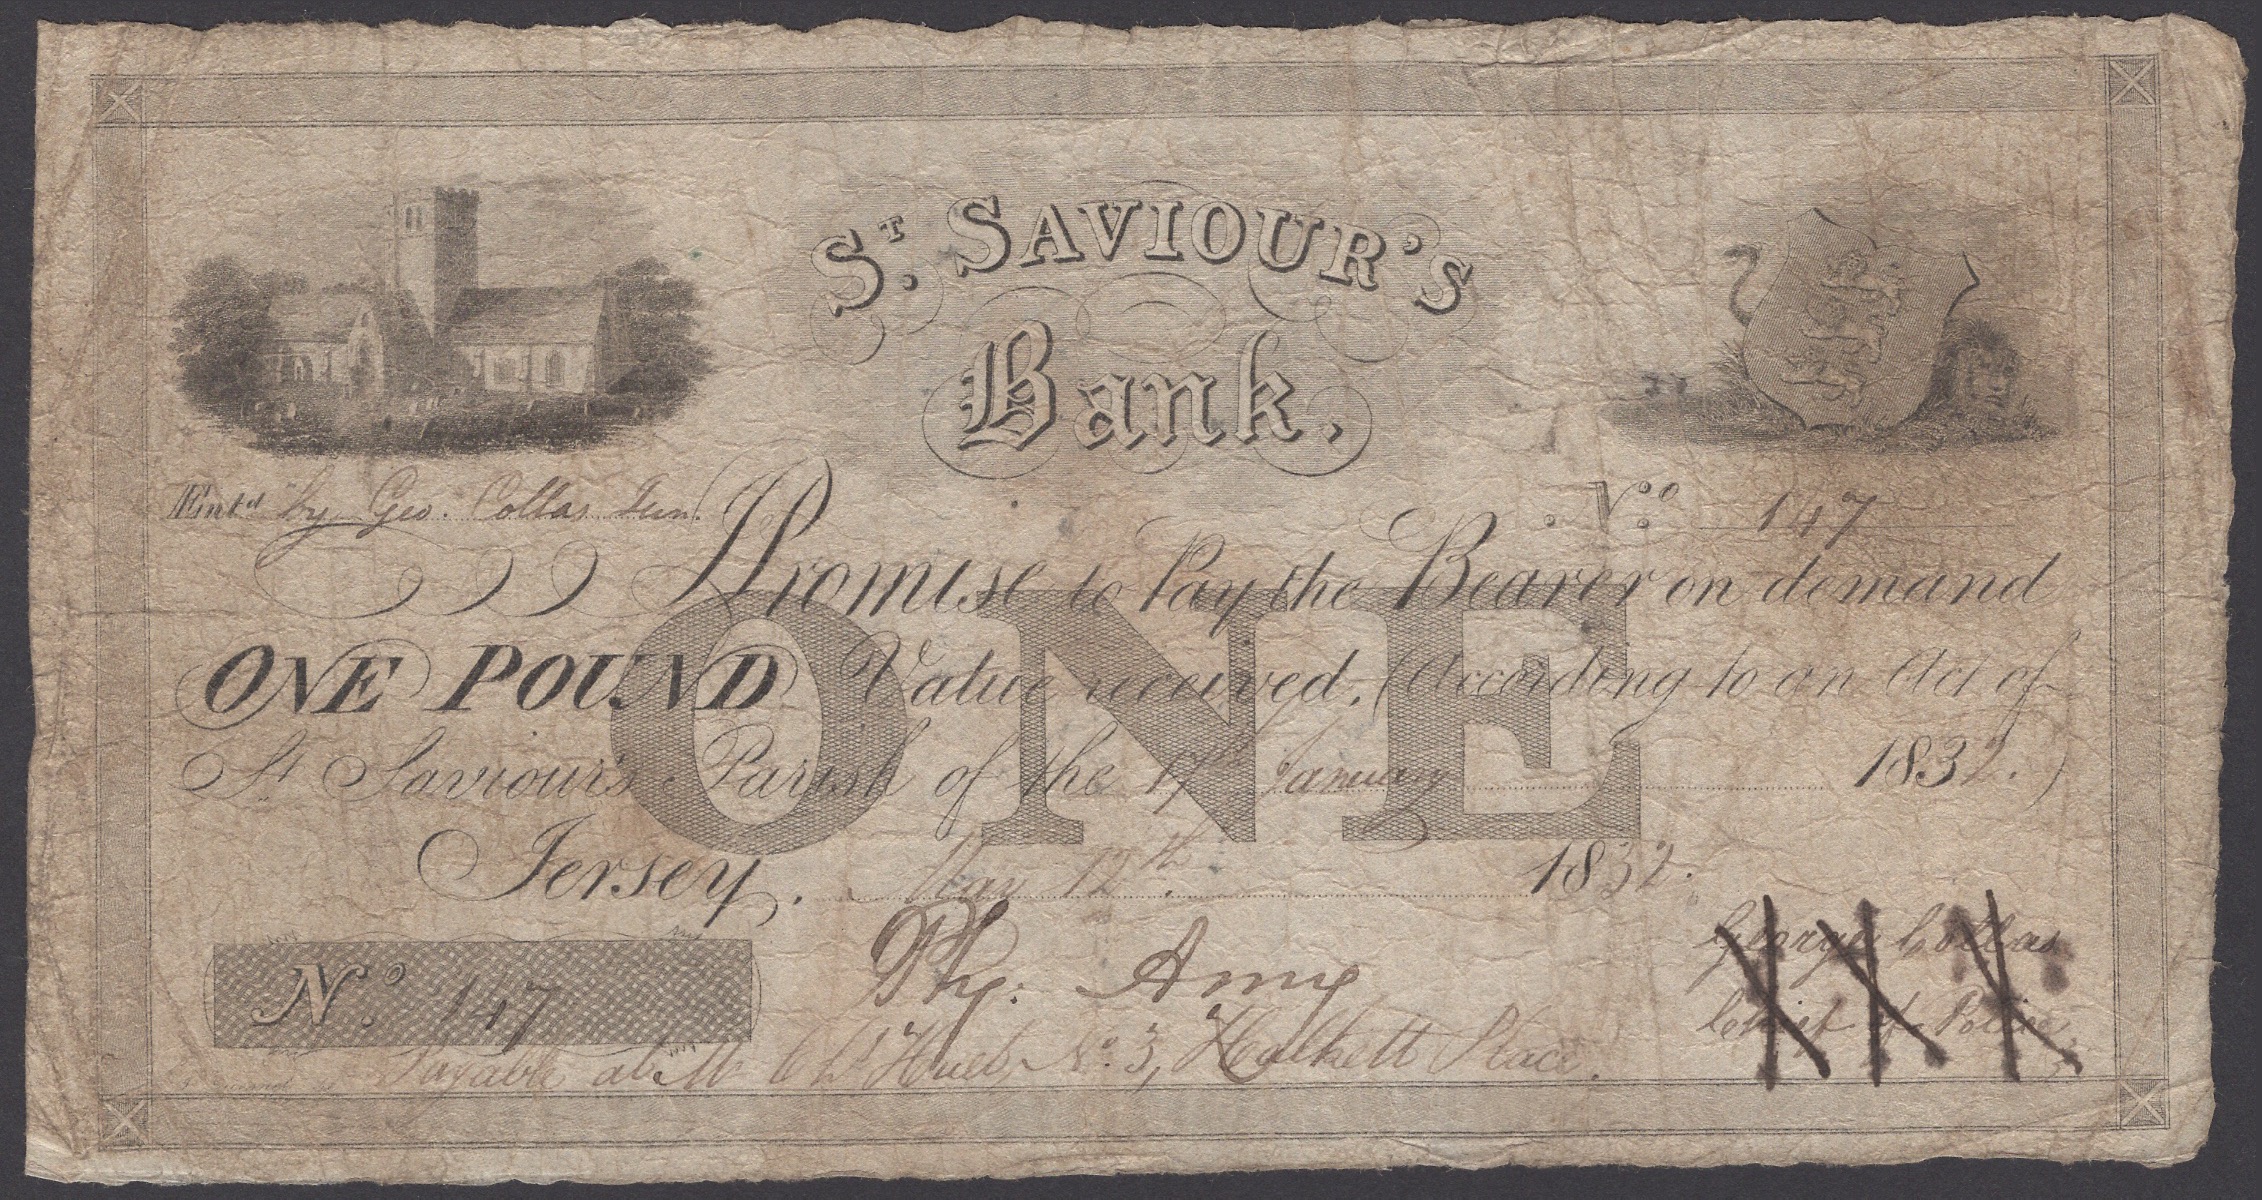 St. SAVIOUR'S
Bank.
Entd. by Geo. Collas Jun.
No. 147
Promise to Pay the Bearer on demand
ONE POUND Value received, (According to an Act of
St Saviour's Parish of the 17th January 1832.)
ONE
Jersey. May 12th. 1832.
Ph. Amy
George Collas
Chief of Police
No. 147
Payable at Mr Chs Hue's No. 3, Halkett Place.